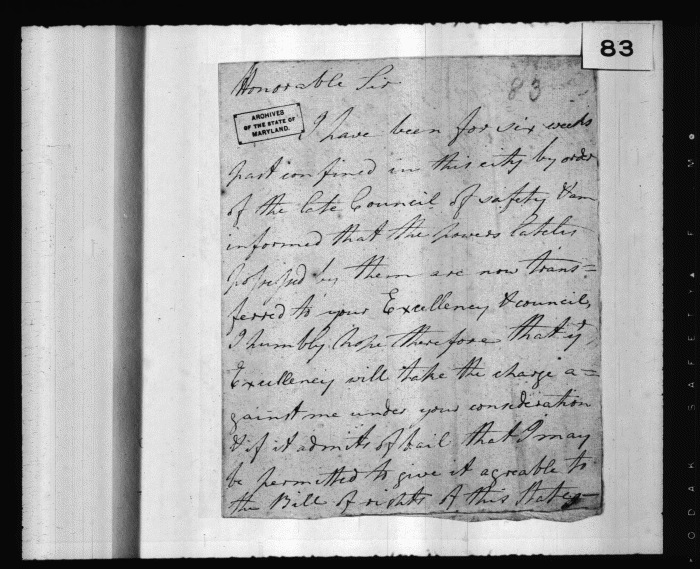 83
Honorable Sir
83
ARCHIVES
OF THE STATE OF
MARYLAND.
I have been for six weeks
past confined in this city by order
of the late Council of safety & am
informed that the powers lately
possessed by them are now trans=
ferred to your Excellency & council,
I humbly hope therefore that yr
Excellency will take the charge a=
gainst me under your consideration
& if it admits of bail that I may
be permitted to give it agreable to
the Bill of rights of this State
KODAK SAFETY A F M